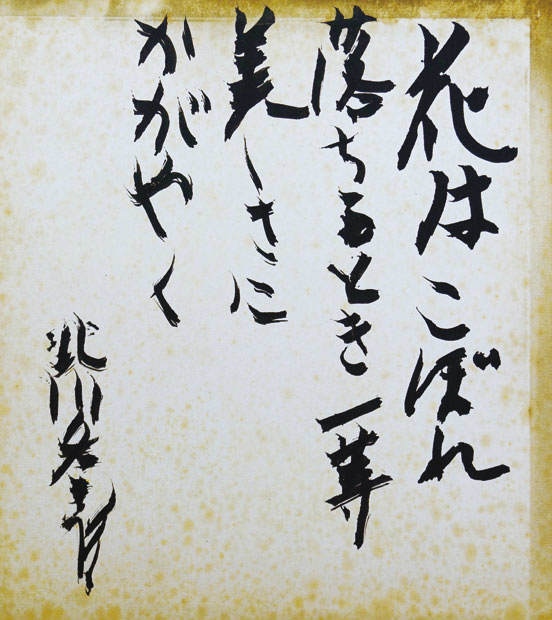 花はこぼれ
落ちるとき一等
美しさに
かがやく
北川冬彦